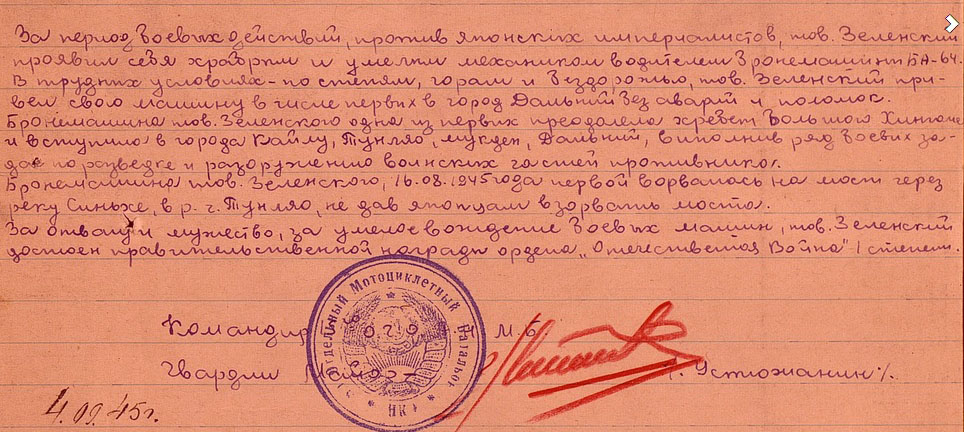 За период боевых действий, против японских империалистов, тов. Зеленский
проявил себя храбрым и умелым механиком водителем бронемашины БА-64.
В трудных условиях - по степям, горам и бездорожью, тов. Зеленский при-
вел свою машину в числе первых в город Дальний без аварий и поломок.
Бронемашина тов. Зеленского одна из первых преодолела хребет Большой Хинган
и вступила в города Кайлу, Тунляо, Мукден, Дальний, выполнив ряд боевых за-
дач по разведке и разоружению воинских частей противника.
Бронемашина тов. Зеленского, 16.08.1945 года первой ворвалась на мост через
реку Синьхе, в р. г. Тунляо, не дав японцам взорвать моста.
За отвагу и мужество, за умелое вождение боевых машин, тов. Зеленский
достоин правительственной награды ордена „Отечественная Война" I степени.
Командир
Гвардии
Устюжанин
4.09.45г.
Отдельный Мотоциклетный Батальон
НКО